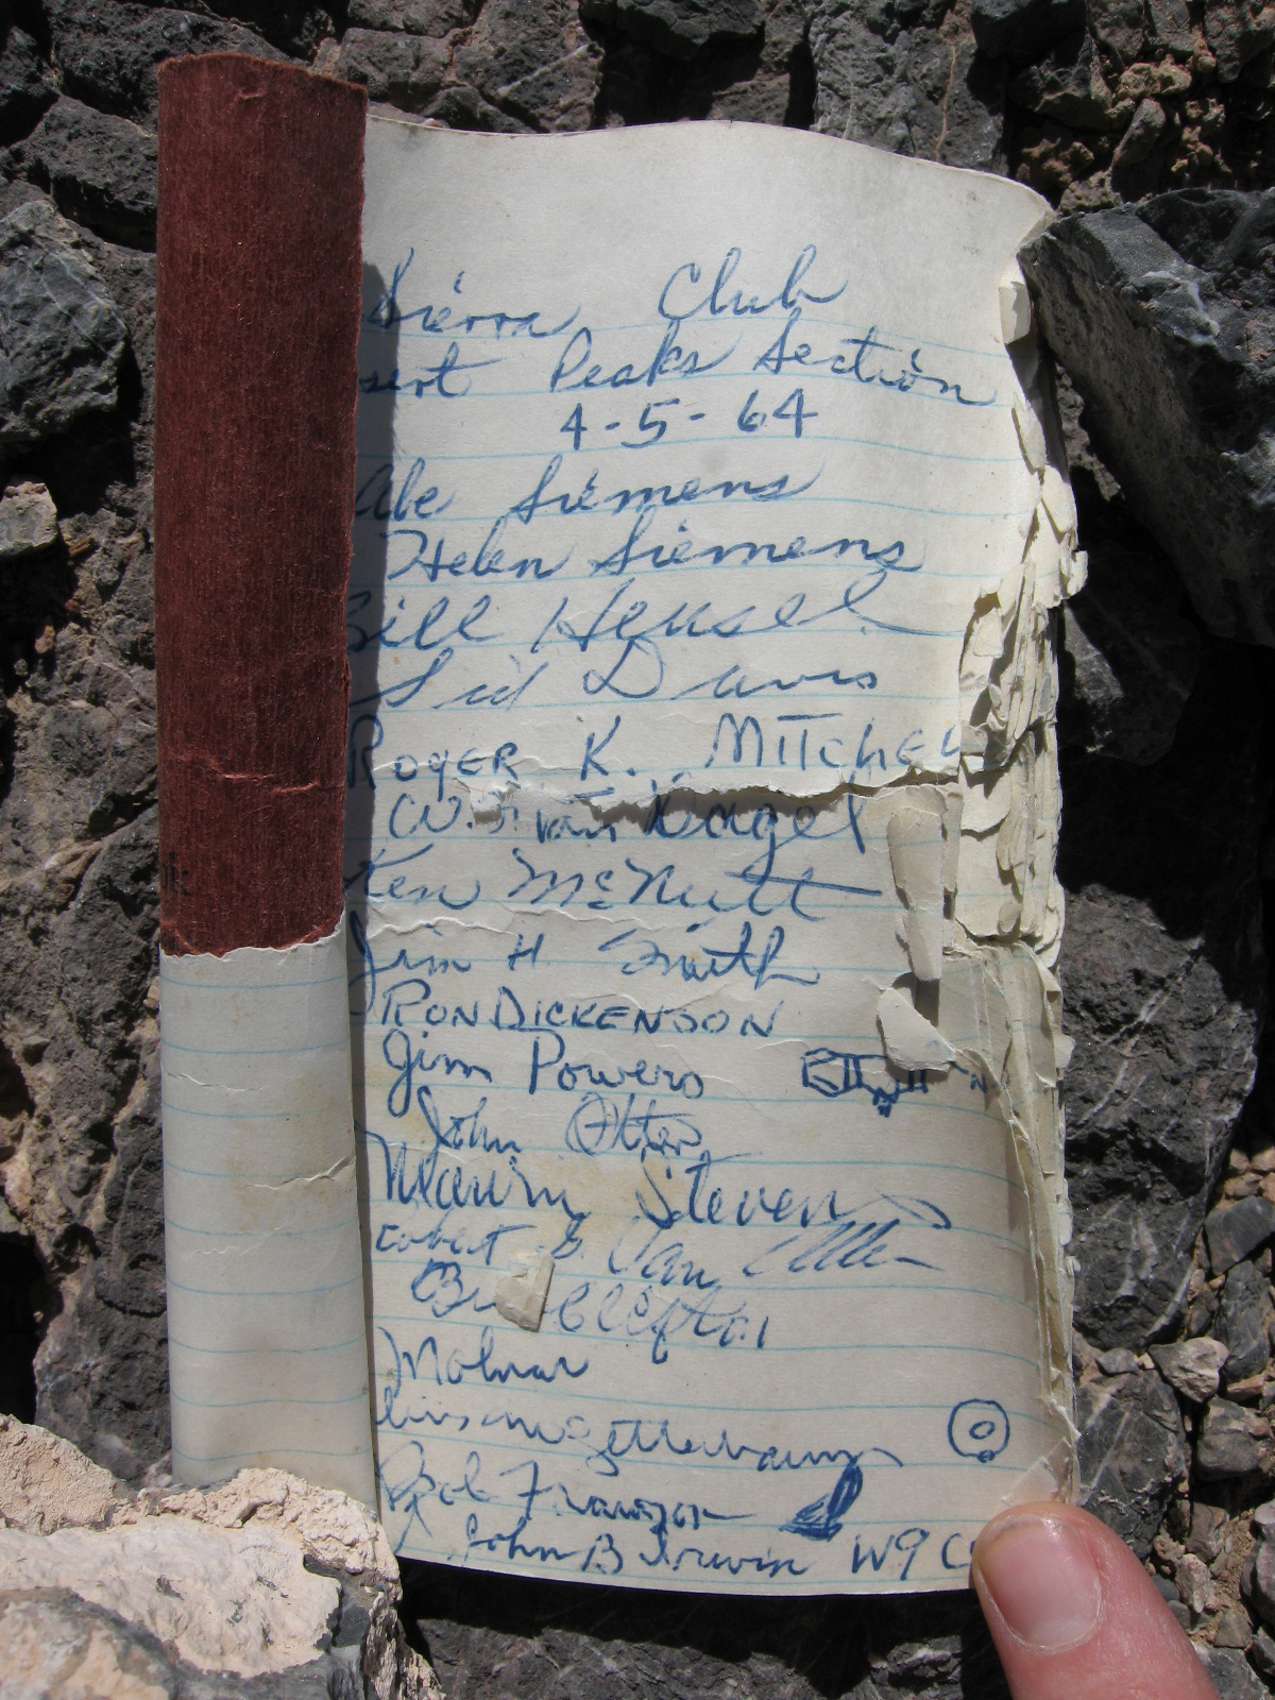 Sierra Club
sert Peaks Section
4-5-64
Abe Siemens
Helen Siemens
Bill Hensel
Sid Davis
ROGER K. MITCHEL
W. J. van
Ken McNutt
Jim H Smith
RON DICKENSON
Jim Powers
John Otter
Steven
obert S. Van Allen
Molnar
Bob
John B Irwin W9C